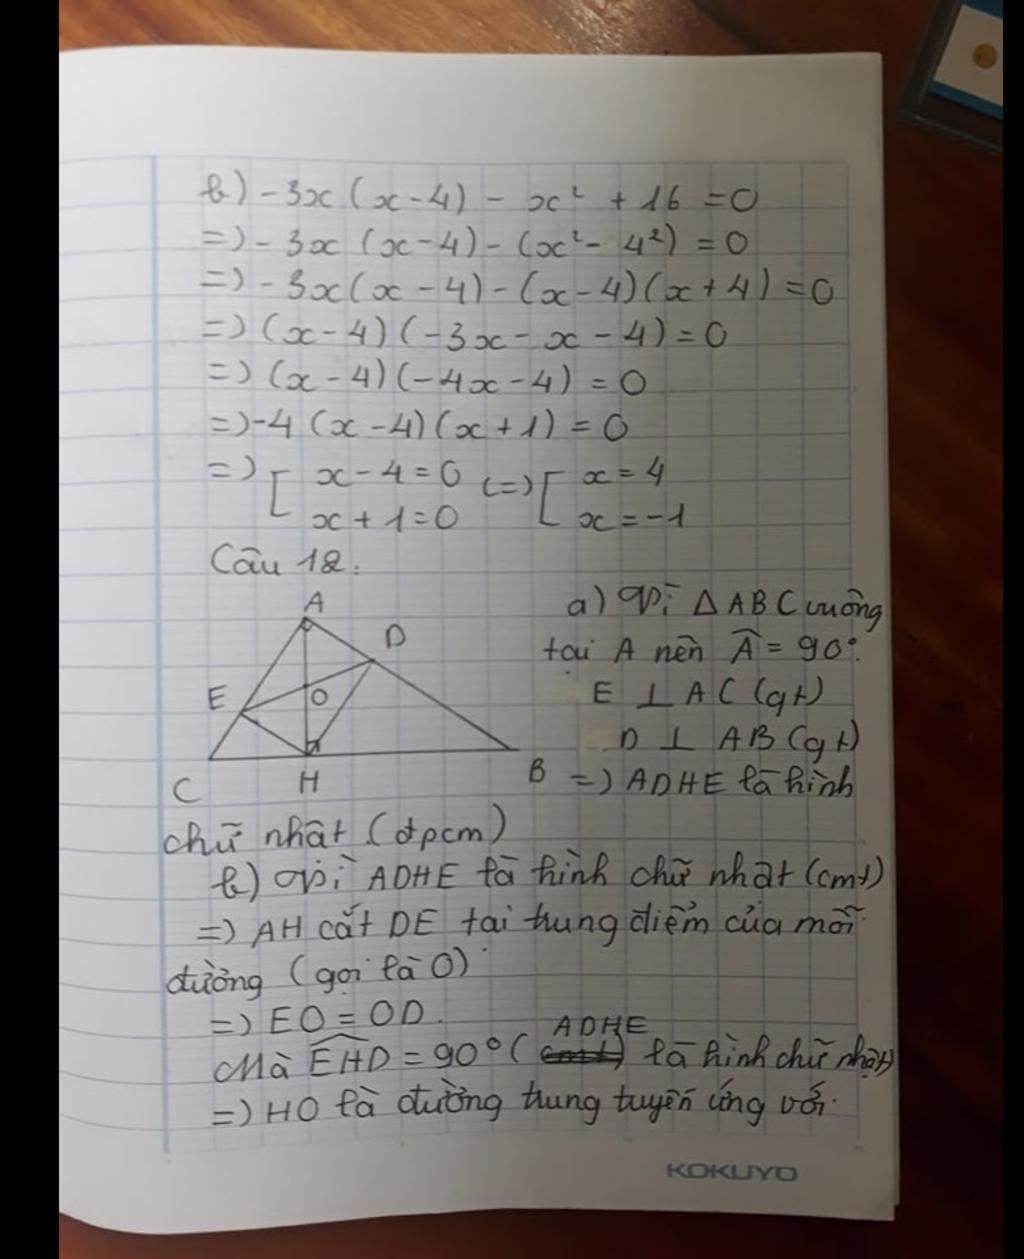 b) -3x (x-4) - x² + 16 = 0
=) -3x (x-4) - (x² - 4²) = 0
=) -3x(x-4) - (x-4)(x+4) = 0
=) (x-4) (-3x - x - 4) = 0
=) (x-4)(-4x-4) = 0
=) -4 (x-4)(x+1) = 0
=) [ x-4=0 (=) [ x=4
x+1=0 x=-1
Câu 18:
A
D
E
O
C
H
B
a) Vì Δ ABC vuông
tại A nên Â = 90°.
E ⊥ AC (gt)
D ⊥ AB (gt)
=) ADHE là hình
chữ nhật (đpcm)
b) Vì ADHE là hình chữ nhật (cmt)
=) AH cắt DE tại trung điểm của mỗi
đường (gọi là O)
=) EO = OD.
Mà EHD = 90° (ADHE là hình chữ nhật)
=) HO là đường trung tuyến ứng với
KOKUYO